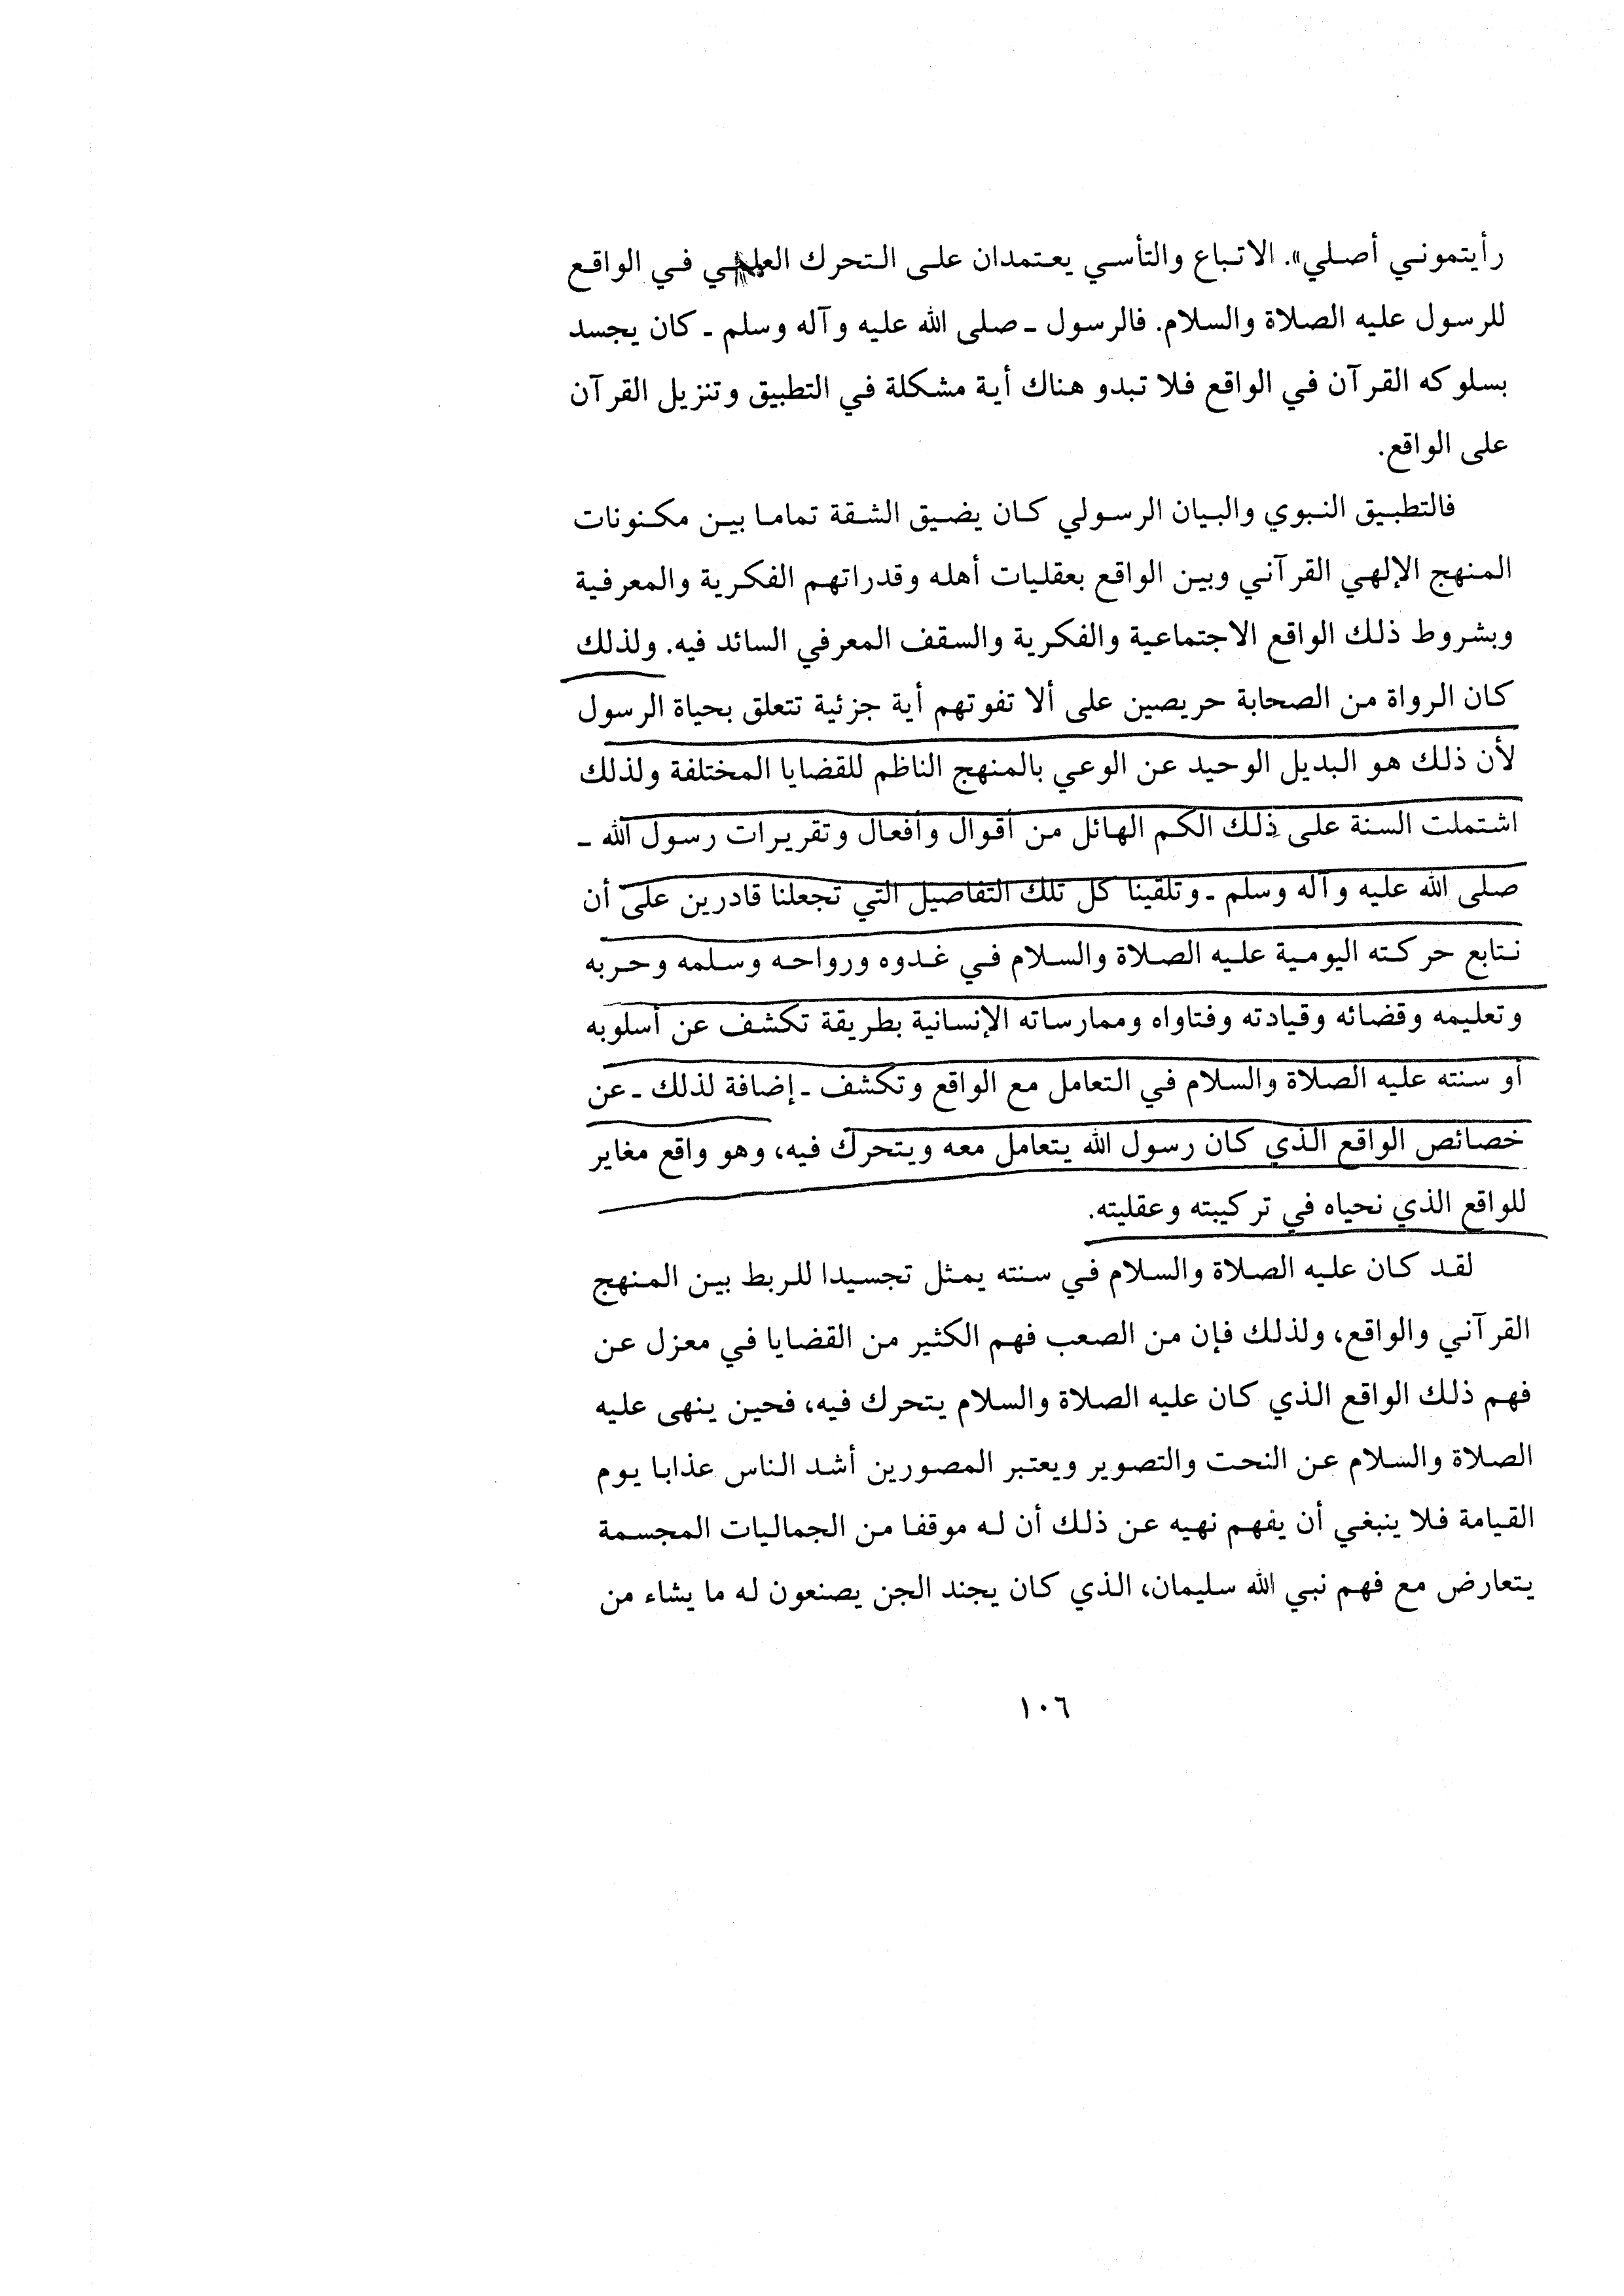 رأيتموني أصلي». الاتباع والتأسي يعتمدان على التحرك في الواقع
للرسول عليه الصلاة والسلام. فالرسول ـ صلى الله عليه وآله وسلم ـ كان يجسد
بسلوكه القرآن في الواقع فلا تبدو هناك أية مشكلة في التطبيق وتنزيل القرآن
على الواقع.
فالتطبيق النبوي والبيان الرسولي كان يضيق الشقة تماما بين مكنونات
المنهج الإلهي القرآني وبين الواقع بعقليات أهله وقدراتهم الفكرية والمعرفية
وبشروط ذلك الواقع الاجتماعية والفكرية والسقف المعرفي السائد فيه. ولذلك
كان الرواة من الصحابة حريصين على ألا تفوتهم أية جزئية تتعلق بحياة الرسول
لأن ذلك هو البديل الوحيد عن الوعي بالمنهج الناظم للقضايا المختلفة ولذلك
اشتملت السنة على ذلك الكم الهائل من أقوال وأفعال وتقريرات رسول الله ـ
صلى الله عليه وآله وسلم ـ وتلقينا كل تلك التفاصيل التي تجعلنا قادرين على أن
نتابع حركته اليومية عليه الصلاة والسلام في غدوه ورواحه وسلمه وحربه
وتعليمه وقضائه وقيادته وفتاواه وممارساته الإنسانية بطريقة تكشف عن أسلوبه
أو سنته عليه الصلاة والسلام في التعامل مع الواقع وتكشف ـ إضافة لذلك ـ عن
خصائص الواقع الذي كان رسول الله يتعامل معه ويتحرك فيه، وهو واقع مغاير
للواقع الذي نحياه في تركيبته وعقليته.
لقد كان عليه الصلاة والسلام في سنته يمثل تجسيدا للربط بين المنهج
القرآني والواقع، ولذلك فإن من الصعب فهم الكثير من القضايا في معزل عن
فهم ذلك الواقع الذي كان عليه الصلاة والسلام يتحرك فيه، فحين ينهى عليه
الصلاة والسلام عن النحت والتصوير ويعتبر المصورين أشد الناس عذابا يوم
القيامة فلا ينبغي أن يفهم نهيه عن ذلك أن له موقفا من الجماليات المجسمة
يتعارض مع فهم نبي الله سليمان، الذي كان يجند الجن يصنعون له ما يشاء من
١٠٦